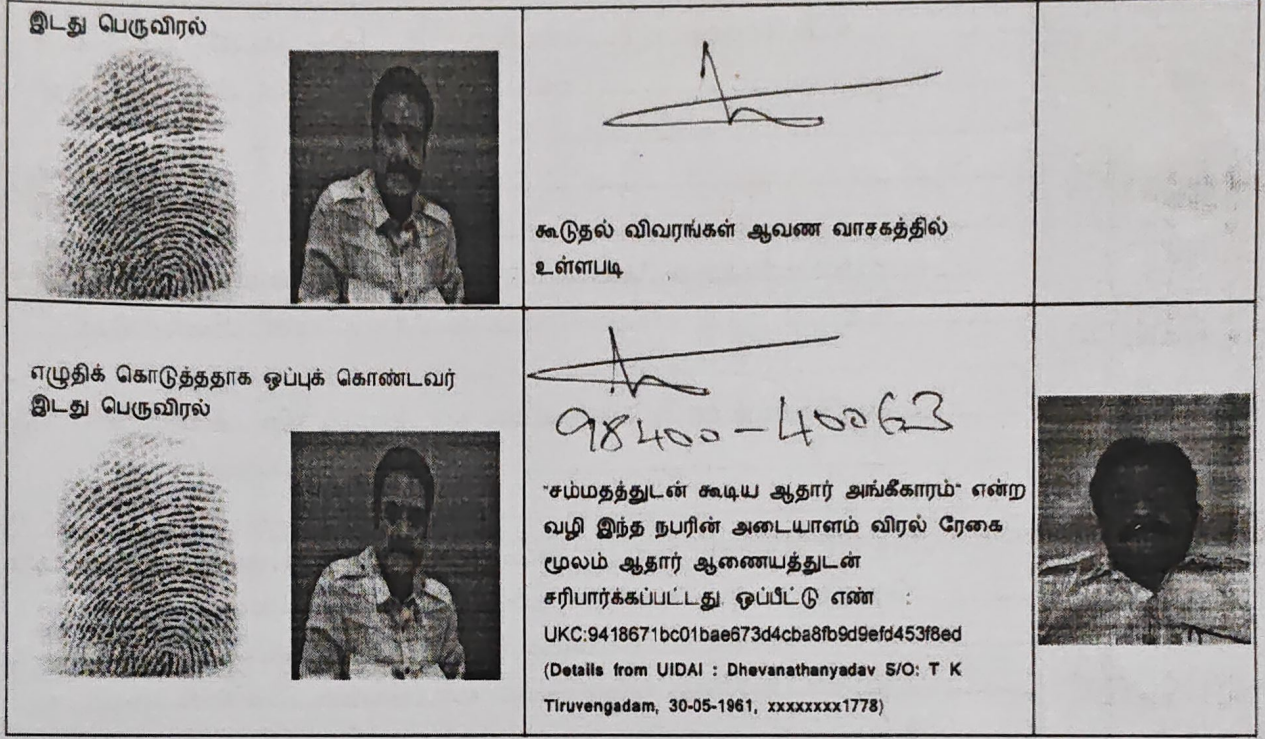 இடது பெருவிரல்
கூடுதல் விவரங்கள் ஆவண வாசகத்தில்
உள்ளபடி
எழுதிக் கொடுத்ததாக ஒப்புக் கொண்டவர்
இடது பெருவிரல்
98400-40063
"சம்மதத்துடன் கூடிய ஆதார் அங்கீகாரம்" என்ற
வழி இந்த நபரின் அடையாளம் விரல் ரேகை
மூலம் ஆதார் ஆணையத்துடன்
சரிபார்க்கப்பட்டது ஒப்பீட்டு எண் :
UKC:9418671bc01bae673d4cba8fb9d9efd453f8ed
(Details from UIDAI : Dhevanathanyadav S/O: T K
Tiruvengadam, 30-05-1961, xxxxxxxx1778)